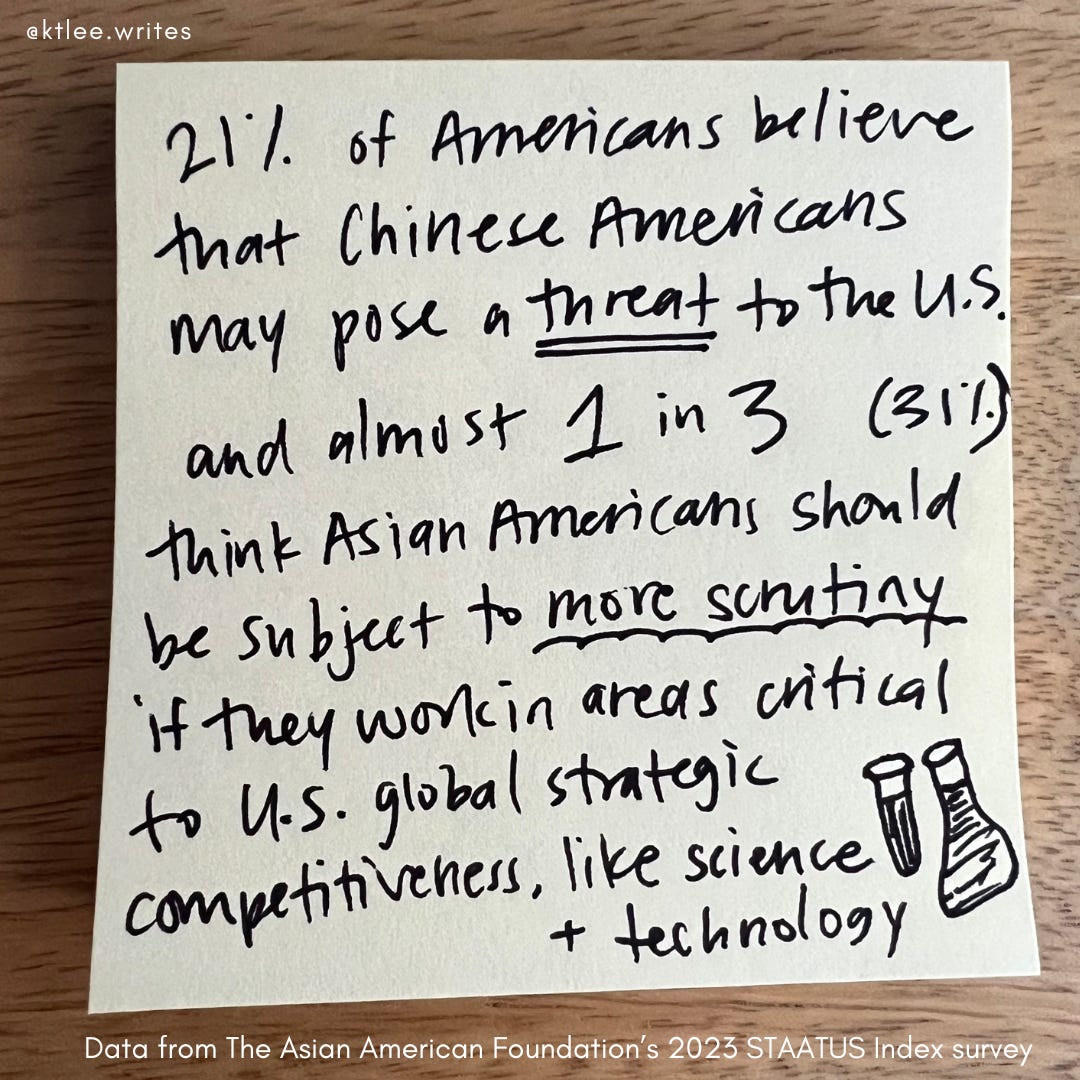 @ktlee.writes
21% of Americans believe
that Chinese Americans
may pose a threat to the U.S.
and almost 1 in 3 (31%)
think Asian Americans should
be subject to more scrutiny
if they work in areas critical
to U.S. global strategic
competitiveness, like science
+ technology
Data from The Asian American Foundation's 2023 STAATUS Index survey